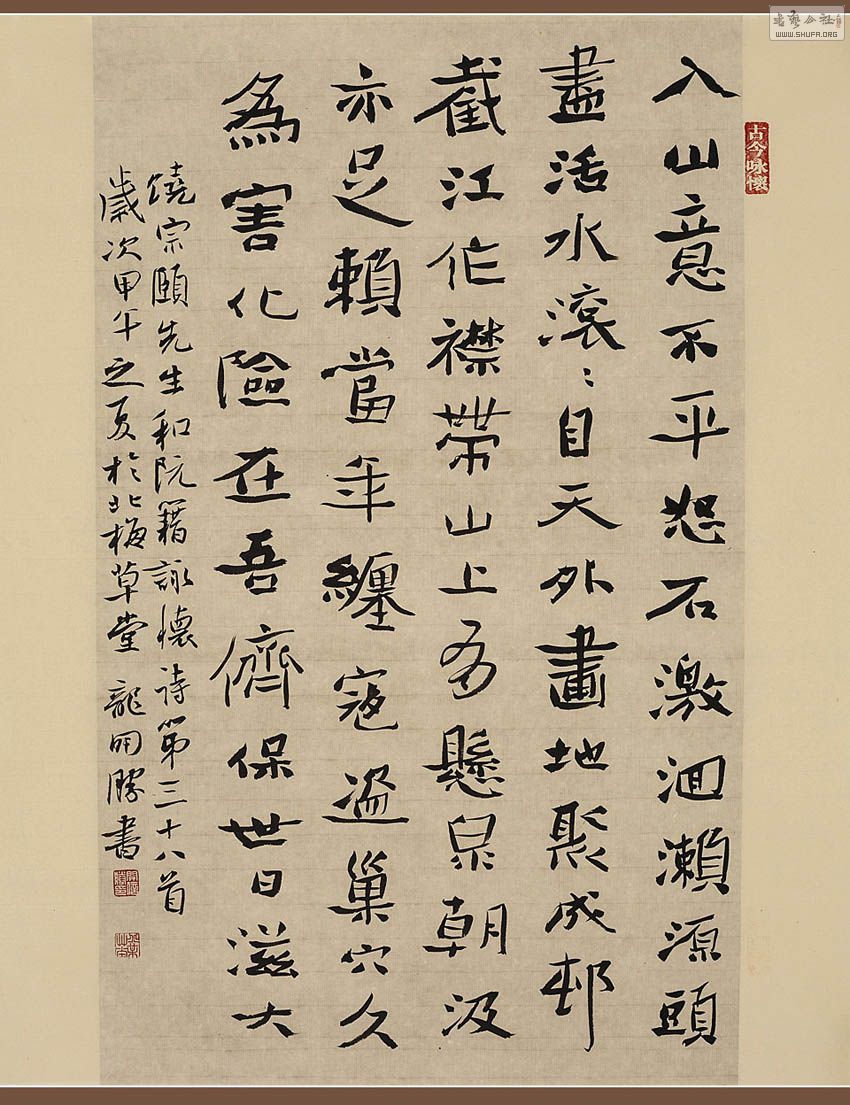 书艺公社
WWW.SHUFA.ORG
古今咏懷
入山意不平怒石激洄瀨源頭
盡活水滾〻自天外畫地聚成邨
截江作襟帶山上有懸泉朝汲
亦足賴當年纏寇盜巢穴久
為害化險在吾儕保世日滋大
饒宗頤先生和阮籍詠懷詩第三十八首
歲次甲午之夏於北梅草堂龍開勝書